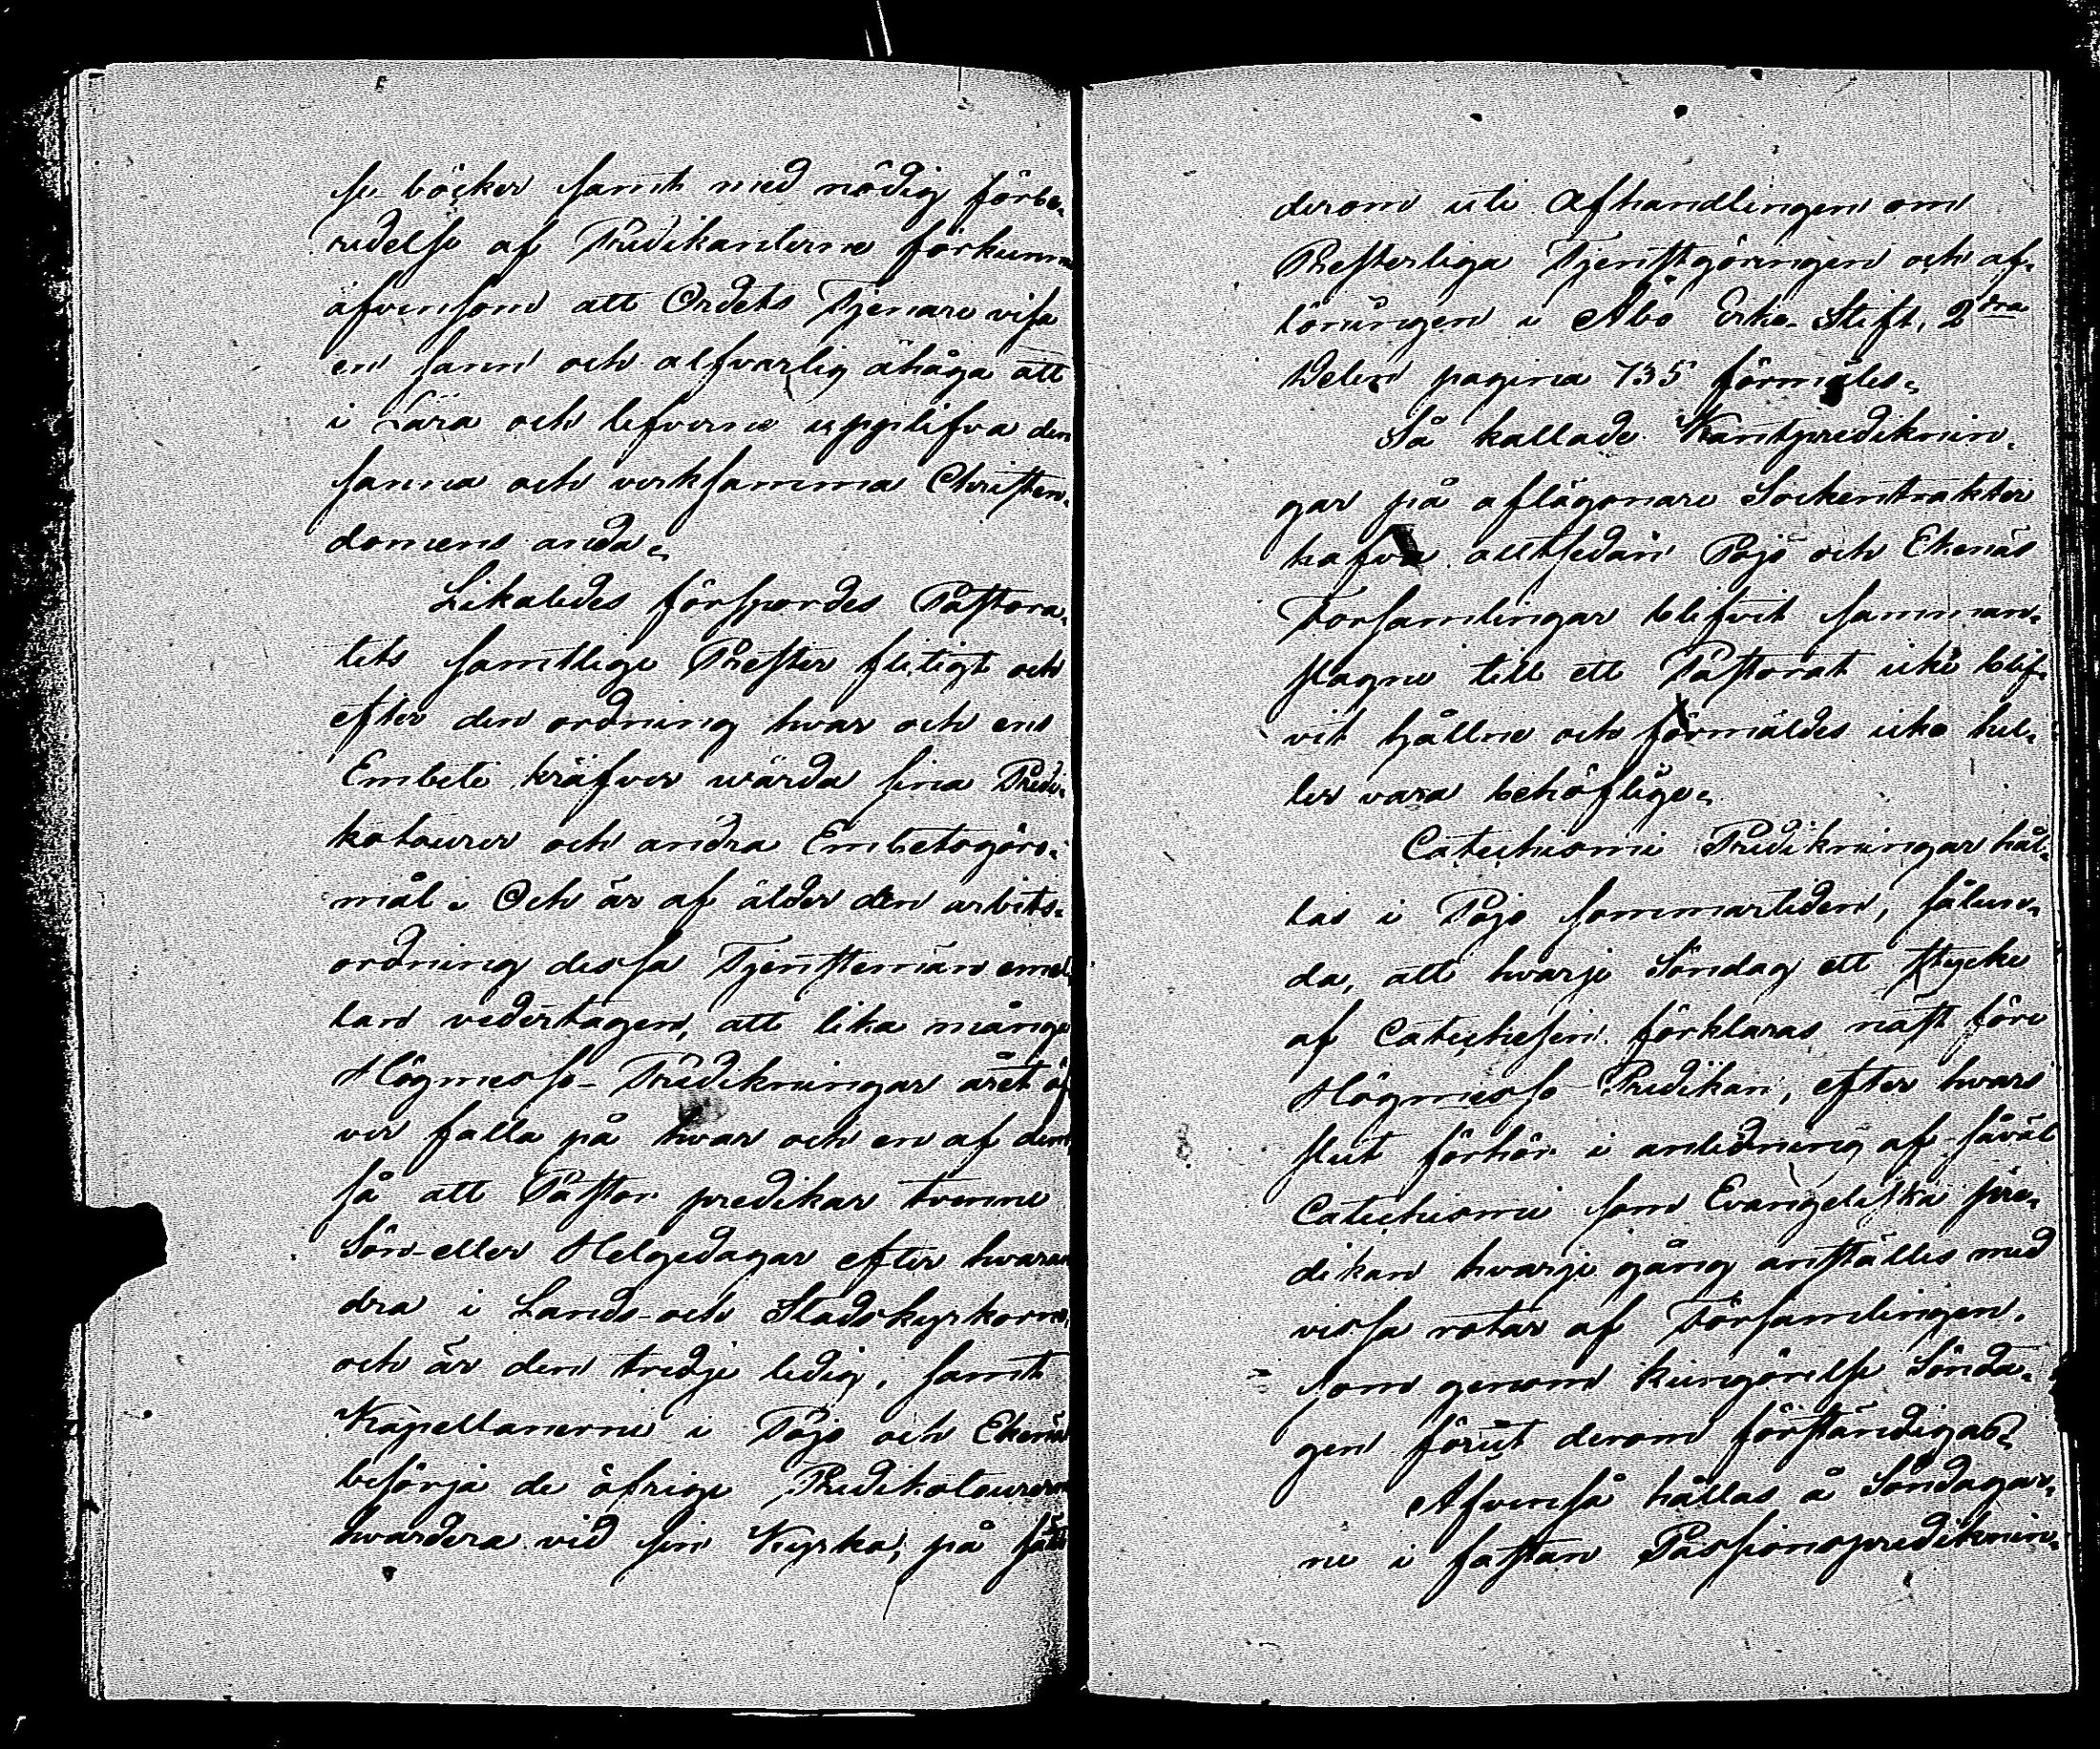 se böcker samt med nödig förbe-
redelse af Predikanterne förkunna
äfvensom att Ordets Tjenare visa
en sann och alfvarlig åhåga att
i Lära och lefverne upplifva den
sanna och verksamma Christen-
domens anda.
Likaledes förspordes Pastora-
tets samtlige Prester flitigt och
efter den ordning hvar och ens
Embete kräfver wårda sina Predi-
kotourer och andra Embetsgöro-
mål. Och är af ålder den arbets-
ordning dessa Tjenstemän emel-
lan vedertagen, att lika många
Högmesso-Predikningar året öf
ver falla på hvar och en af dem,
så att Pastor predikar tvenne
Sön- eller Helgedagar efter hvaran
dra i Lands- och Stadskyrkorne,
och är den tredje ledig, samt
Kapellanerne i Pojo och Ekenäs
besörja de öfrige Predikotourerne
hvardera vid sin Kyrka, på sätt
derom uti Afhandlingen om
Presterliga Tjenstgöringen och af-
löningen i Åbo Erke-Stift, 2dra
Delen pagina 735 förmäles.
Så kallade Kantprediknin-
gar på aflägsnare Sockentrakter
hafva alltsedan Pojo och Ekenäs
Församlingar blifvit samman-
slagne till ett Pastorat icke blif-
vit hållne och förmäldes icke hel-
ler vara behöflige.
Catechismi Predikningar hål-
las i Pojo sommartiden, sålun-
da, att hvarje Söndag ett stycke
af Catechesen förklaras näst före
Högmesso-Predikan, efter hvars
slut förhör i anledning af såväl
Catechismi som Evangeliska pre-
dikan hvarje gång anställes med
vissa rotar af Församlingen,
som genom kungörelse Sönda-
gen förut derom förständigas.
Afvenså hållas å Söndagar-
ne i fastan Passionsprediknin-